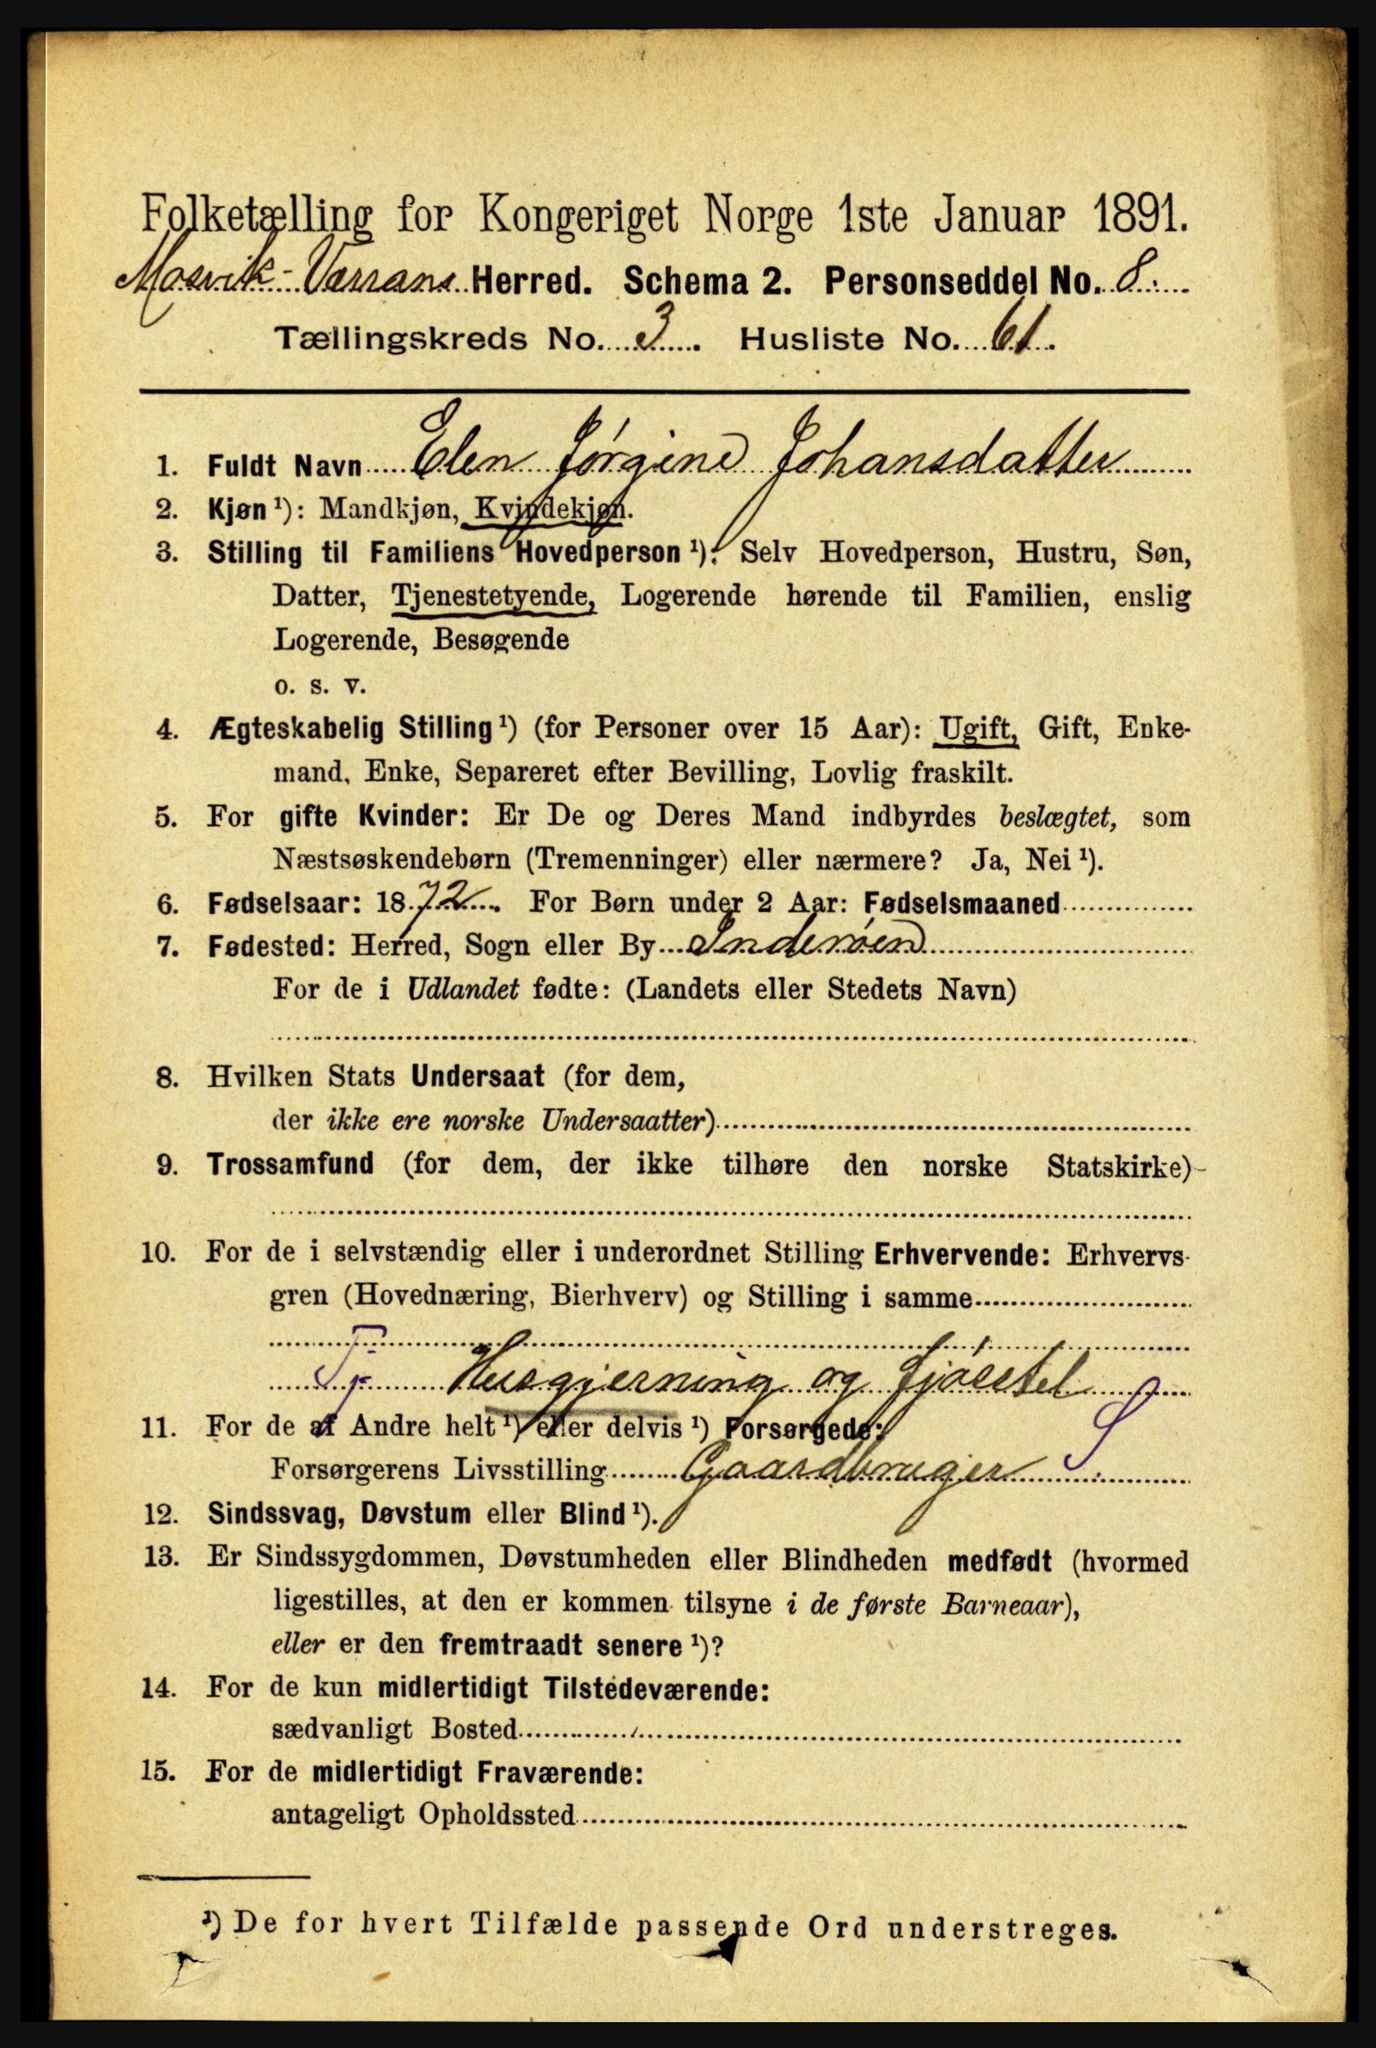 Folketælling for Kongeriget Norge 1ste Januar 1891.
Mosvik-Værrans Herred. Schema 2. Personseddel No. 8.
Tællingskreds No. 3. Husliste No. 61.
1. Fuldt Navn Elen Jørgine Johansdatter
2. Kjøn¹): Mandkjøn, Kvindekjøn.
3. Stilling til Familiens Hovedperson¹): Selv Hovedperson, Hustru, Søn,
Datter, Tjenestetyende, Logerende hørende til Familien, enslig
Logerende, Besøgende
o. s. v.
4. Ægteskabelig Stilling¹) (for Personer over 15 Aar): Ugift, Gift, Enke-
mand, Enke, Separeret efter Bevilling, Lovlig fraskilt.
5. For gifte Kvinder: Er De og Deres Mand indbyrdes beslægtet, som
Næstsøskendebørn (Tremenninger) eller nærmere? Ja, Nei¹).
6. Fødselsaar: 1872. For Børn under 2 Aar: Fødselsmaaned
7. Fødested: Herred, Sogn eller By Inderøen
For de i Udlandet fødte: (Landets eller Stedets Navn)
8. Hvilken Stats Undersaat (for dem,
der ikke ere norske Undersaatter)
9. Trossamfund (for dem, der ikke tilhøre den norske Statskirke)
10. For de i selvstændig eller i underordnet Stilling Erhvervende: Erhvervs-
gren (Hovednæring, Bierhverv) og Stilling i samme
Tj Husgjerning og fjøsstel
11. For de af Andre helt¹) eller delvis¹) Forsørgede:
Forsørgerens Livsstilling Gaardbruger S
12. Sindssvag, Døvstum eller Blind¹).
13. Er Sindssygdommen, Døvstumheden eller Blindheden medfødt (hvormed
ligestilles, at den er kommen tilsyne i de første Barneaar),
eller er den fremtraadt senere¹)?
14. For de kun midlertidigt Tilstedeværende:
sædvanligt Bosted
15. For de midlertidigt Fraværende:
antageligt Opholdssted
¹) De for hvert Tilfælde passende Ord understreges.